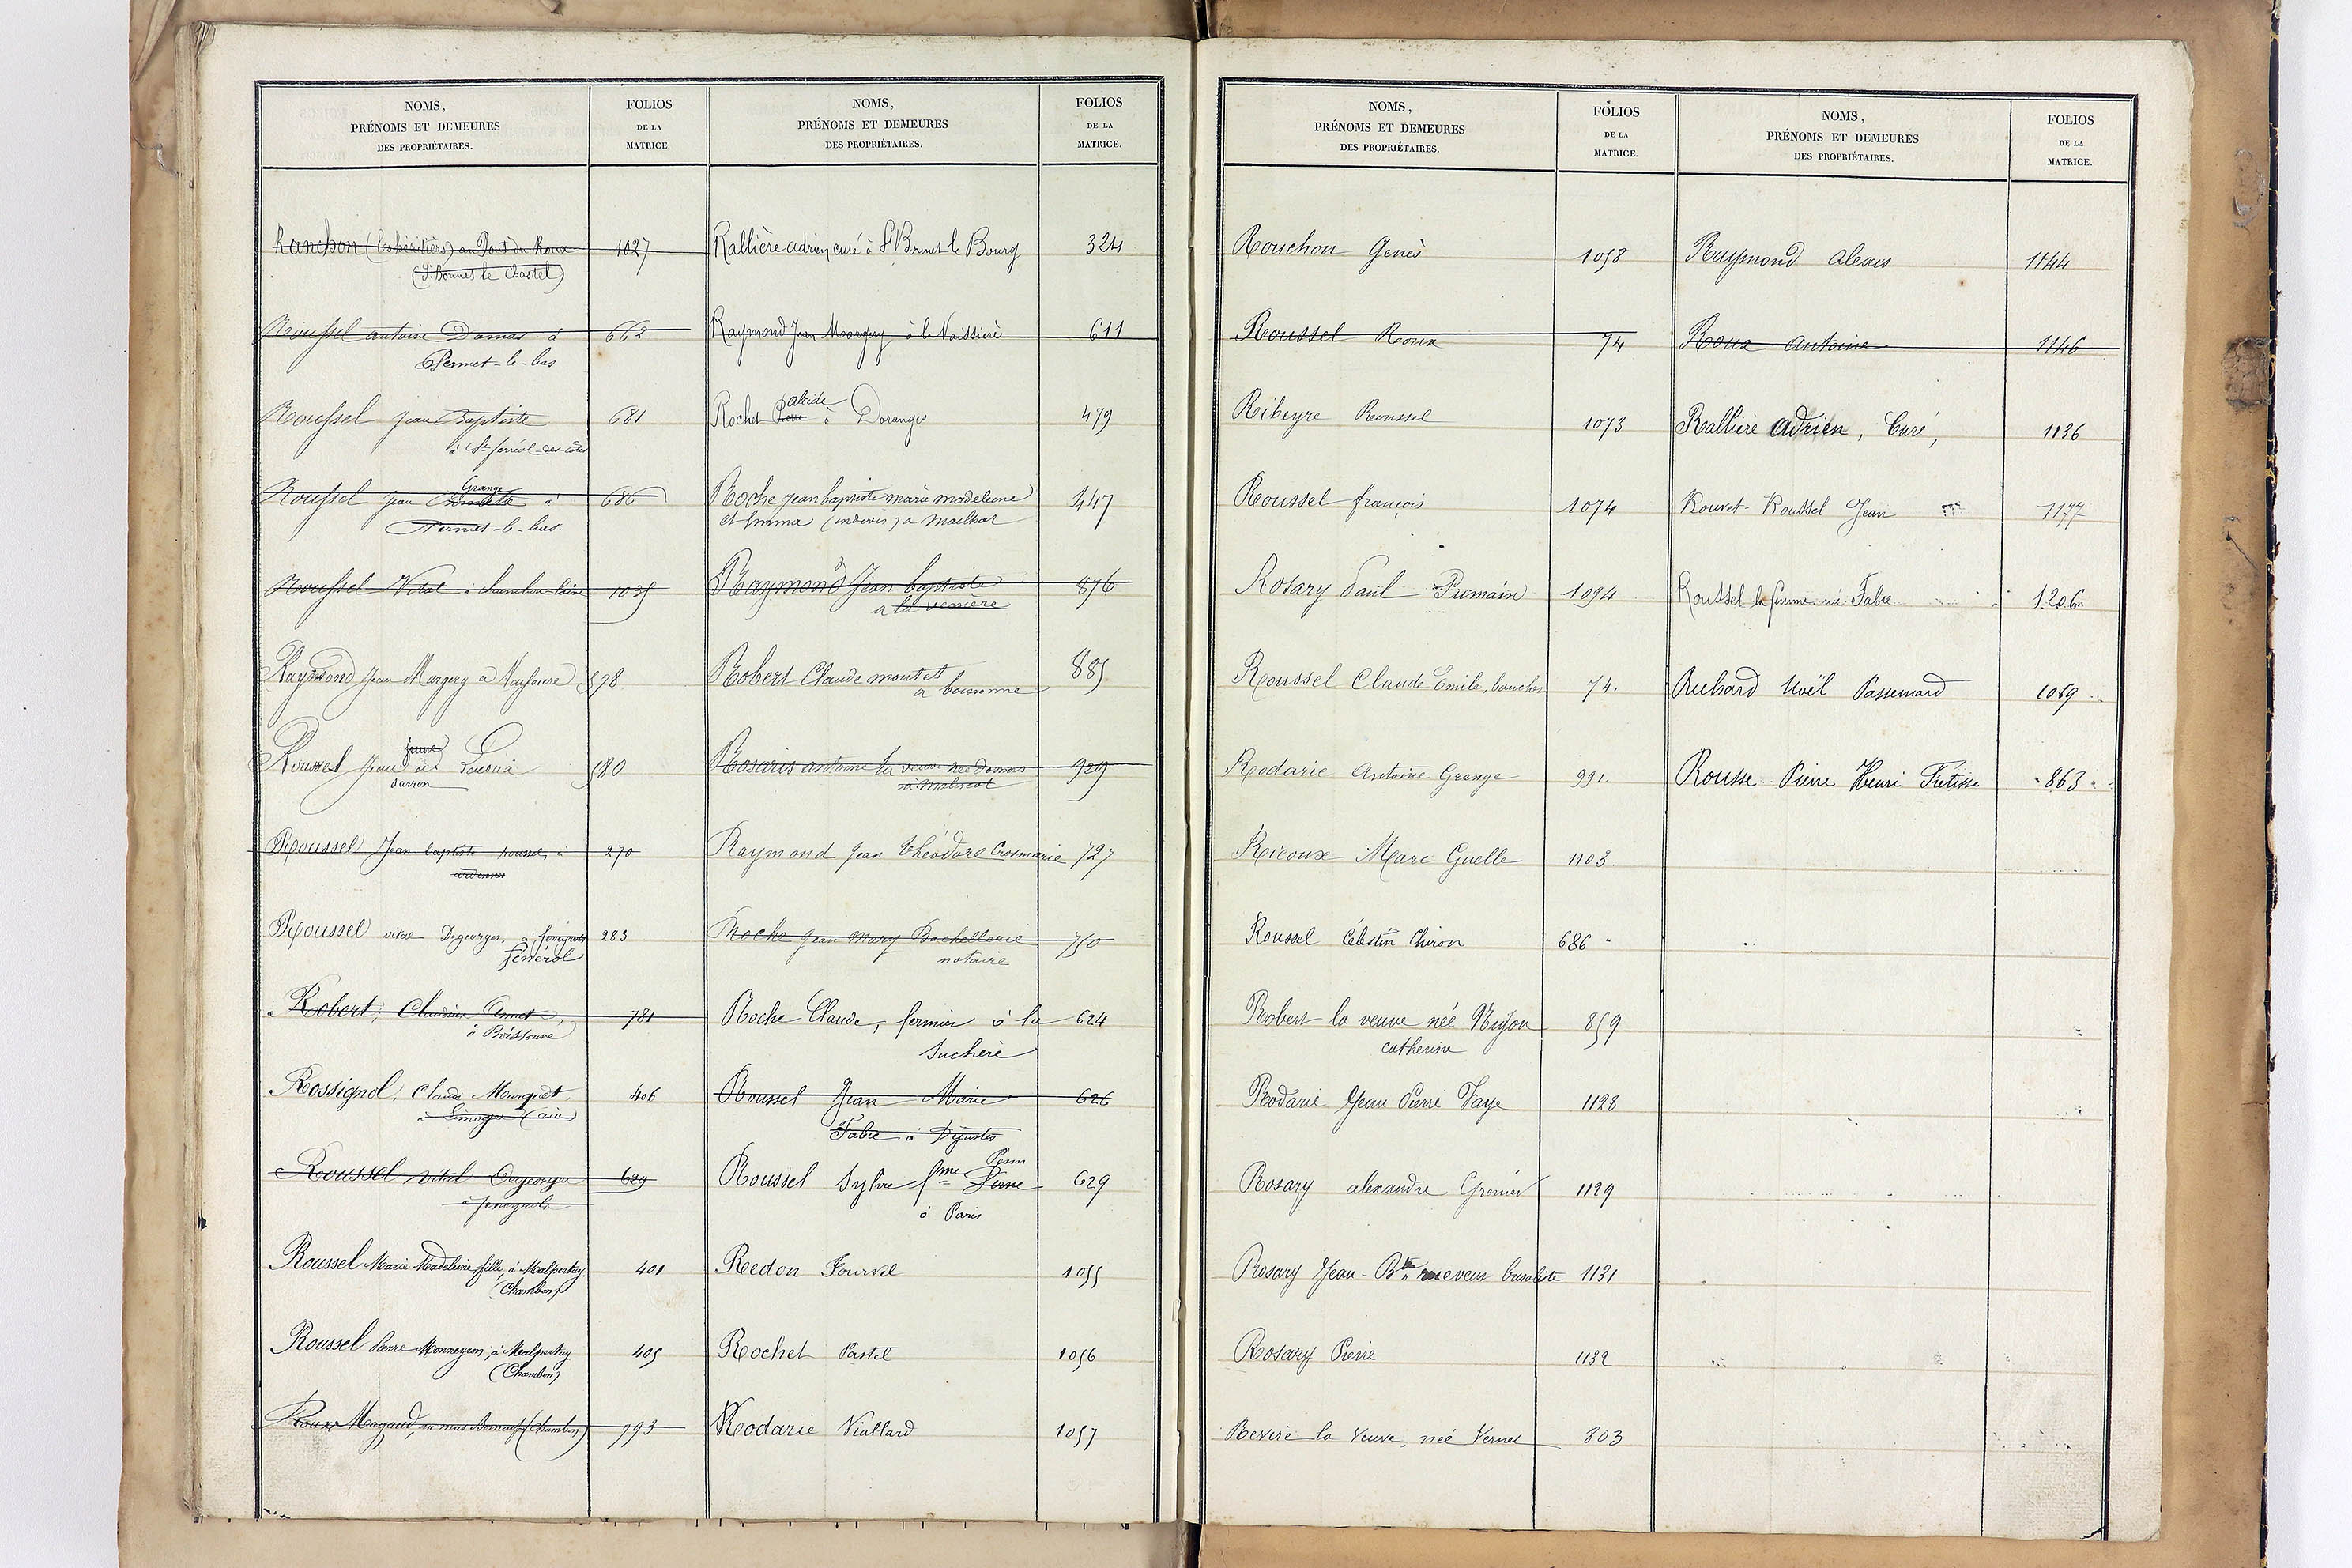 NOMS,
PRÉNOMS ET DEMEURES
DES PROPRIÉTAIRES.
FOLIOS
DE LA
MATRICE.
Ranchon (les héritiers) au Pont du Roux 1027
(St Bonnet le Chastel)
Roussel antoine Damas à 662
Permet-le-bas
Roussel jean Baptiste 681
à St ferréol-des-côtes
Grange
Roussel jean à 686
Permet-le-bas
Roussel Vital à chambon laire 1035
Raymond Jean Margery à 578
jeune
Roussel Jean à 580
Sarron
Roussel Jean baptiste roussel, à 270
ardennes
Roussel vital Degeorges, à 283
Robert, Annet, 781
à Boissonne
Rossignol, Claude Murguet 406
à Limoges
Roussel vital Degeorges 629
Roussel Marie Madeleine, fille, à Malpertuy 401
(Chambon)
Roussel Pierre Monneyron, à Malpertuy 405
(Chambon)
Roux Magaud, au mas (Chambon) 793
NOMS,
PRÉNOMS ET DEMEURES
DES PROPRIÉTAIRES.
FOLIOS
DE LA
MATRICE.
Rallière adrien, curé à St Bonnet le Bourg 324
Raymond Jean Margery à la Vaissière 611
alcide
Rochet Pierre à Doranges 479
Roche Jean baptiste marie madeleine 447
et Emma (indivis) à mailhat
Raymond Jean baptiste 876
à la
Robert Claude moutet 885
à boissonne
Rosaris antoine la veuve née damas 929
à
Raymond Jean théodore Crosmarie 727
Roche Jean Mary Bachellerie 750
notaire
Roche Claude, fermier à la 624
Suchère
Roussel Jean Marie 626
Fabre à Dijustes
Roussel Sylvie fme Pierre 629
à Paris
Redon Fournel 1055
Rochet Pastel 1056
Rodarie Viallard 1057
NOMS,
PRÉNOMS ET DEMEURES
DES PROPRIÉTAIRES.
FOLIOS
DE LA
MATRICE.
Rouchon Genès 1058
Roussel Roux 74
Ribeyre Roussel 1073
Roussel françois 1074
Rosary Paul Pumain 1094
Roussel Claude Emile, boucher 74.
Rodarie Antoine Grange 991.
Ricoux Marc Guelle 1103.
Roussel Célestin Chiron 686
Robert la veuve née 859
catherine
Rodarie Jean Pierre Faye 1128
Rosary alexandre Grenier 1129
Rosary Jean-Bte neveux buraliste 1131
Rosary Pierre 1132
la Veuve, née Vernet 803
NOMS,
PRÉNOMS ET DEMEURES
DES PROPRIÉTAIRES.
FOLIOS
DE LA
MATRICE.
Raymond alexis 1144
Roux Antoine 1146
Rallière adrien, Curé, 1136
Rouvet-Roussel Jean 1177
Roussel la femme née Fabre 1206
Richard Noël Passemard 1069
Rousse Pierre Henri 863